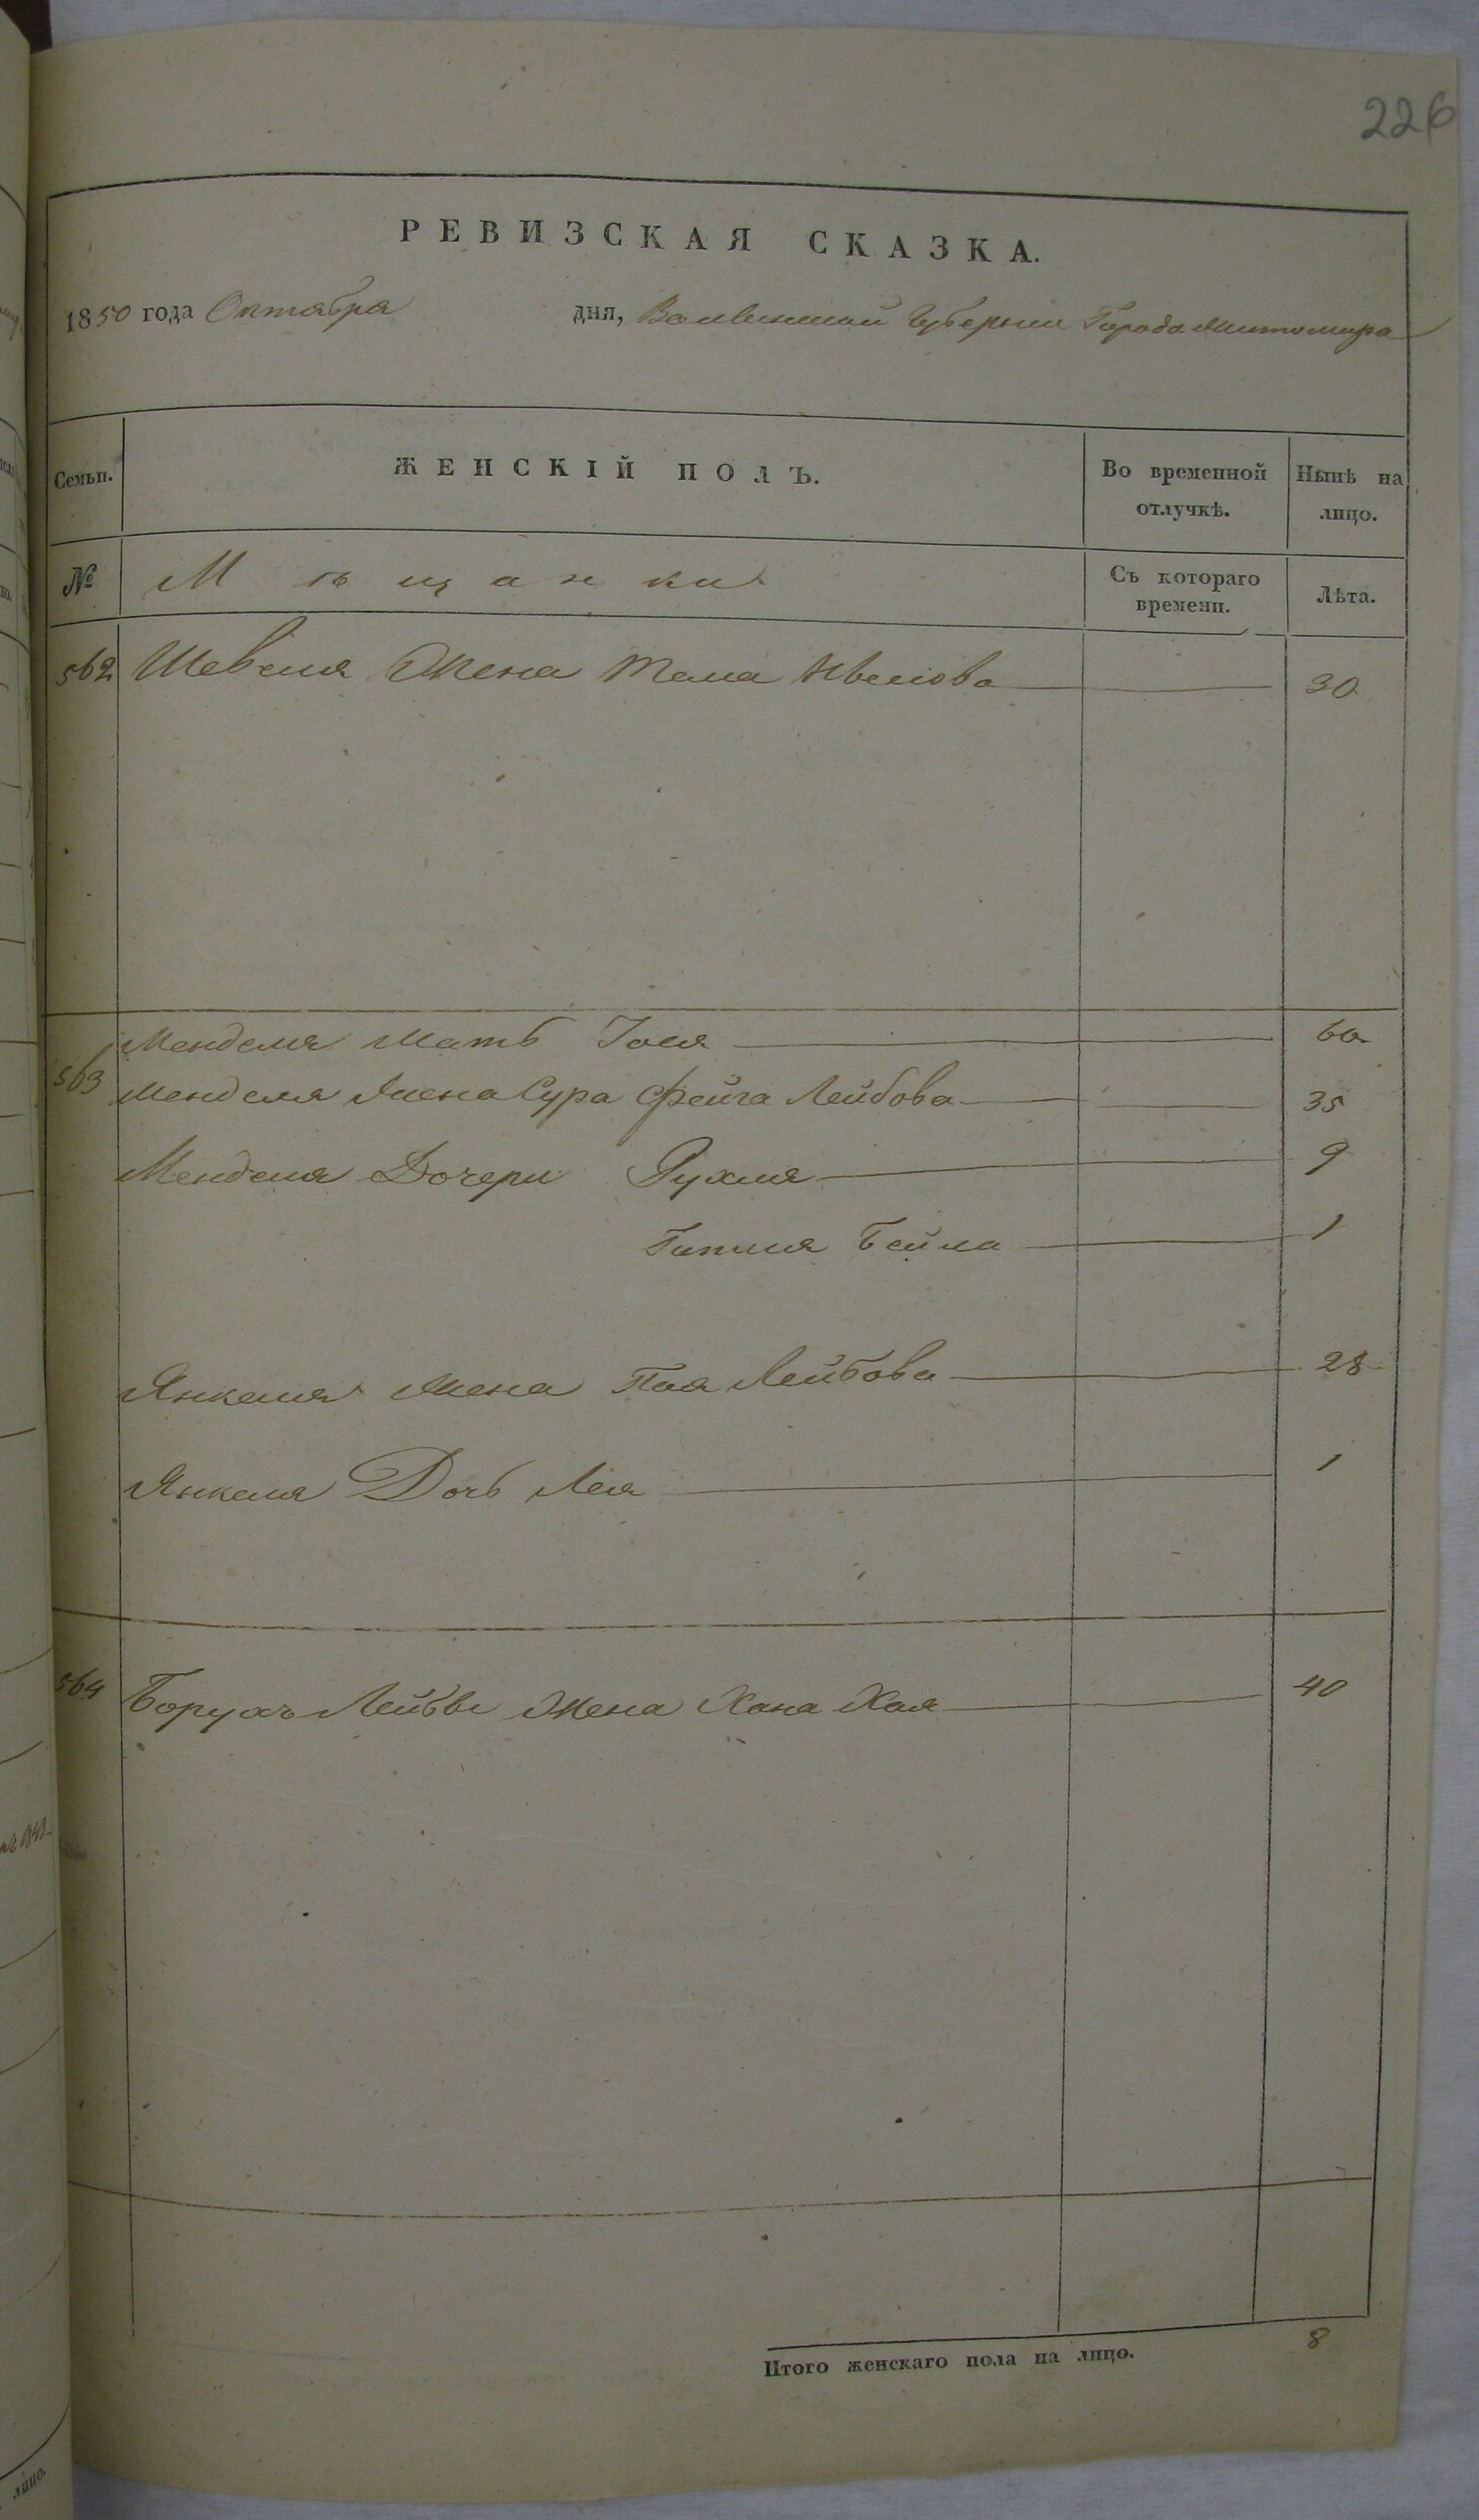 226
РЕВИЗСКАЯ СКАЗКА.
1850 года Октября дня, Волынской Губернии Города Житомира
Семьи. ЖЕНСКІЙ ПОЛЪ. Во временной отлучкѣ. Нынѣ на лицо.
№ Мѣщанки Съ котораго времени. Лѣта.
562 Шевеля Жена 30
Менделя Мать 60
563 Менделя Жена Сура Фейга Лейбова 35
Менделя Дочери Рухля 9
Гитля Бейла 1
Янкеля Жена Лейбова 28
Янкеля Дочь Лея 1
564 Борухъ Лейбы Жена Хана Хая 40
Итого женскаго пола на лицо. 8